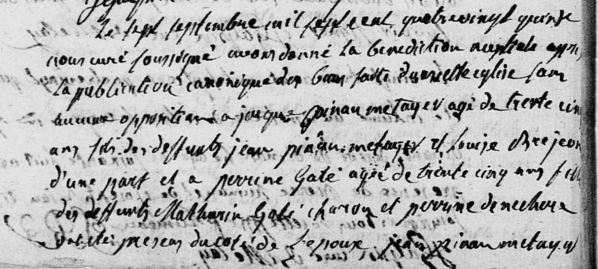 Le sept septembre mil sept cent quatrevingt quinze
nous curé soussigné avons donné la benediction nuptiale apres
la publication canonique des bans faite dans cette eglise sans
aucune opposition a jacque pinau metayer agé de trente cinq
ans fils des deffunts jean pinau metayer et louise Brejeon
d'une part et a perrine Gaté agée de trente cinq ans fille
des deffunts Mathurin Gaté charon et perrine
ont été presens du coté de L'epoux jean pinau metayer